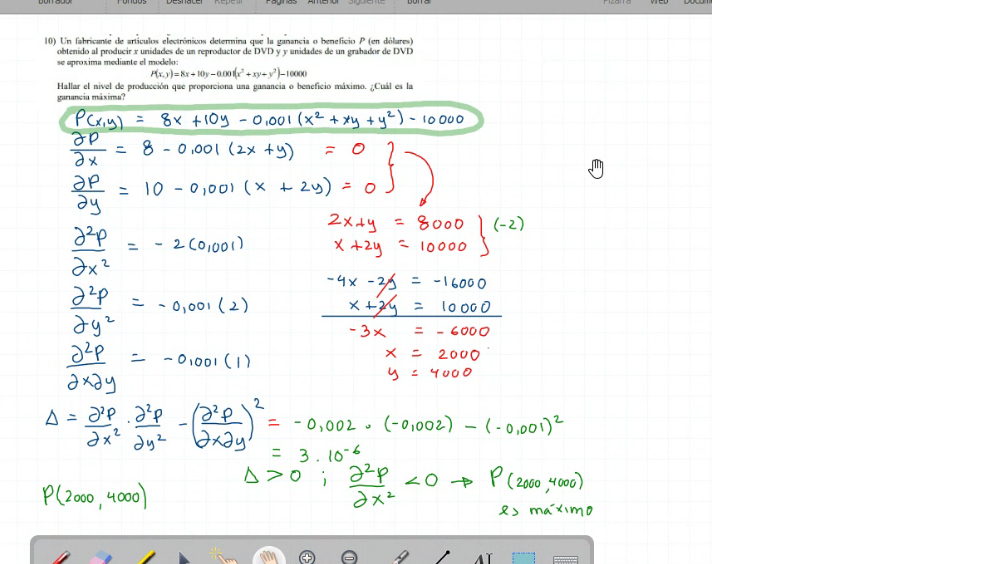 Borrador Fondos Deshacer Repetir Páginas Anterior Siguiente Borrar Pizarra Web Docum
10) Un fabricante de artículos electrónicos determina que la ganancia o beneficio P (en dólares)
obtenido al producir x unidades de un reproductor de DVD y y unidades de un grabador de DVD
se aproxima mediante el modelo:
P(x, y) = 8x + 10y − 0.001(x² + xy + y²) − 10000
Hallar el nivel de producción que proporciona una ganancia o beneficio máximo. ¿Cuál es la
ganancia máxima?
P(x,y) = 8x + 10y − 0,001 (x² + xy + y²) − 10000
∂P/∂x = 8 − 0,001 (2x + y) = 0
∂P/∂y = 10 − 0,001 (x + 2y) = 0
2x + y = 8000 } (−2)
x + 2y = 10000
∂²P/∂x² = − 2 (0,001)
−4x − 2y = −16000
∂²P/∂y² = − 0,001 (2)
x + 2y = 10000
−3x = − 6000
x = 2000
∂²P/∂x∂y = − 0,001 (1)
y = 4000
Δ = ∂²P/∂x² · ∂²P/∂y² − (∂²P/∂x∂y)² = − 0,002 · (−0,002) − (−0,001)²
= 3 . 10⁻⁶
Δ > 0 ; ∂²P/∂x² < 0 → P (2000, 4000)
P(2000, 4000)
es máximo